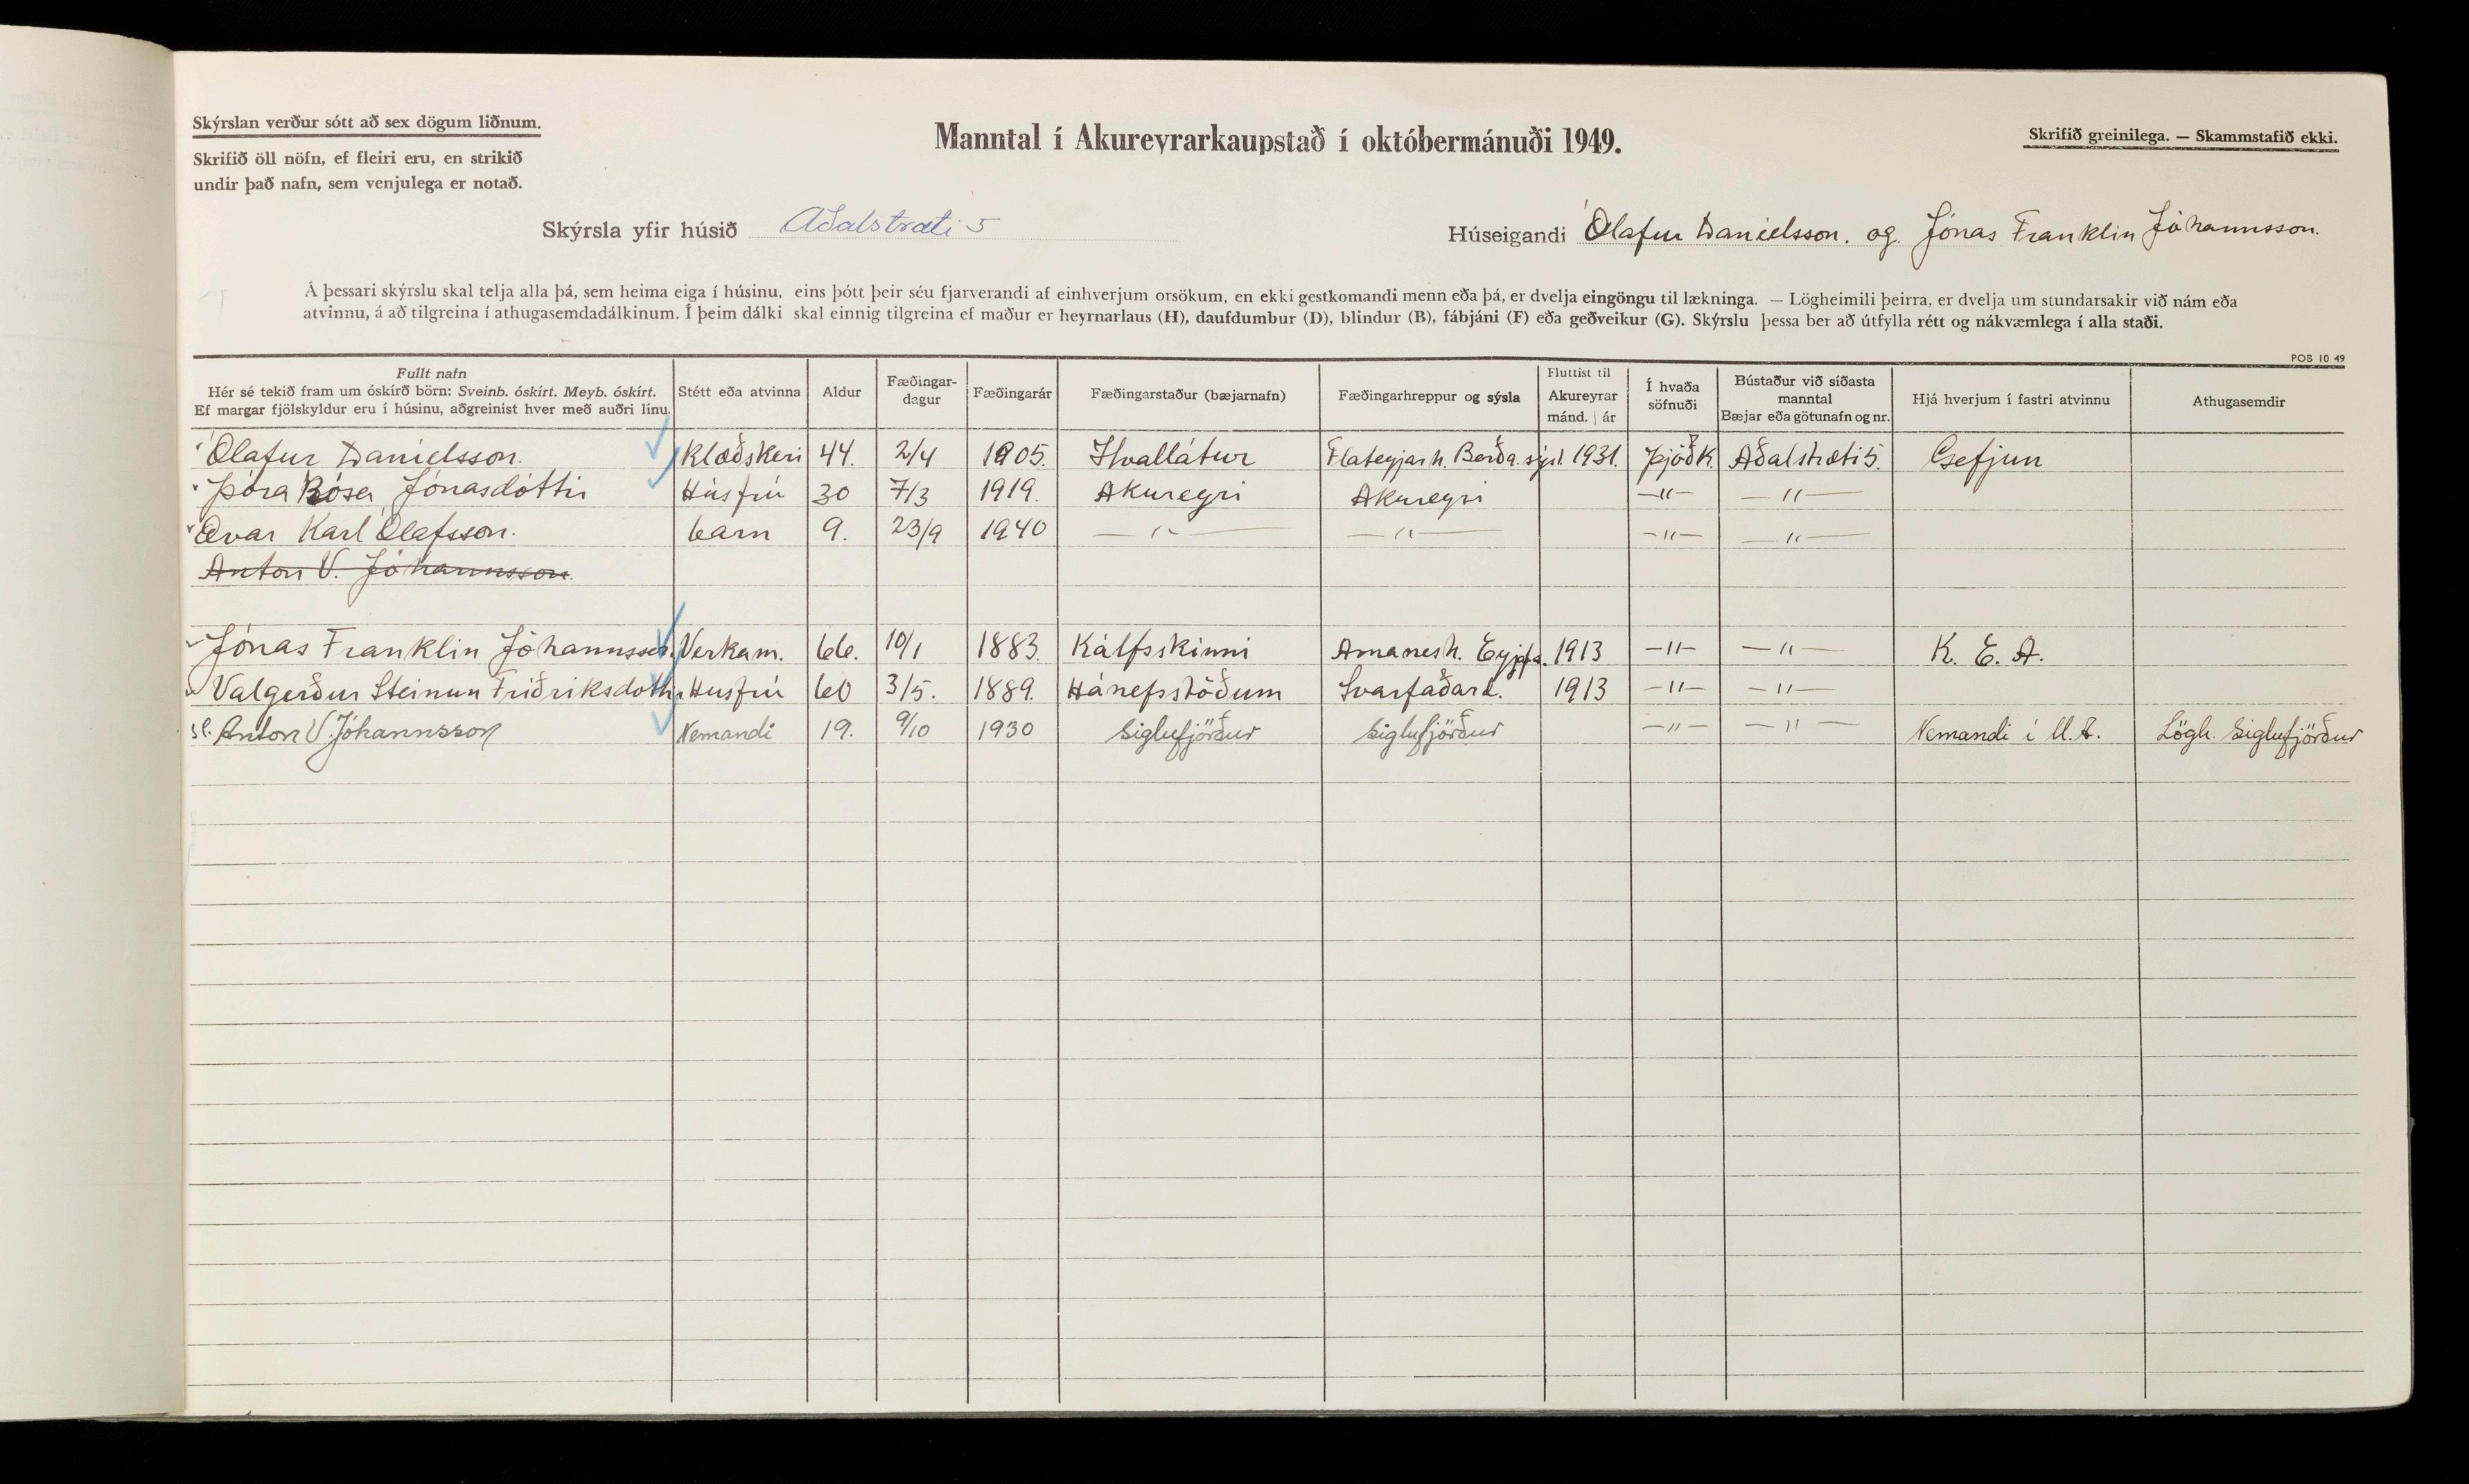 Skýrslan verður sótt að sex dögum liðnum.
Skrifið öll nöfn, ef fleiri eru, en strikið
undir það nafn, sem venjulega er notað.
Manntal í Akureyrarkaupstað í októbermánuði 1949.
Skrifið greinilega. — Skammstafið ekki.
Skýrsla yfir húsið Aðalstræti 5
Húseigandi Ólafur Daníelsson. og Jónas Franklin Jóhannsson.
Á þessari skýrslu skal telja alla þá, sem heima eiga í húsinu, eins þótt þeir séu fjarverandi af einhverjum orsökum, en ekki gestkomandi menn eða þá, er dvelja eingöngu til lækninga. — Lögheimili þeirra, er dvelja um stundarsakir við nám eða
atvinnu, á að tilgreina í athugasemdadálkinum. Í þeim dálki skal einnig tilgreina ef maður er heyrnarlaus (H), daufdumbur (D), blindur (B), fábjáni (F) eða geðveikur (G). Skýrslu þessa ber að útfylla rétt og nákvæmlega í alla staði.
POB 10 49
Fullt nafn
Hér sé tekið fram um óskírð börn: Sveinb. óskírt. Meyb. óskírt.
Ef margar fjölskyldur eru í húsinu, aðgreinist hver með auðri línu.
Stétt eða atvinna
Aldur
Fæðingar-
dagur
Fæðingarár
Fæðingarstaður (bæjarnafn)
Fæðingarhreppur og sýsla
Fluttist til
Akureyrar
mánd. | ár
Í hvaða
söfnuði
Bústaður við síðasta
manntal
Bæjar eða götunafn og nr.
Hjá hverjum í fastri atvinnu
Athugasemdir
Ólafur Daníelsson. Klæðskeri 44. 2/4 1905. Hvallátur Flateyjarh. Barða.sýsl. 1931. Þjóðk. Aðalstræti 5. Gefjun
Þóra Rósa Jónasdóttir Húsfrú 30 7/3 1919. Akureyri Akureyri —"— —"—
Ævar Karl Ólafsson. barn 9. 23/9 1940 —"— —"— —"— —"—
Anton V. Jóhannsson.
Jónas Franklin Jóhannsson. Verkam. 66. 10/1 1883. Kálfsskinni Arnanesh. Eyjafs. 1913 —"— —"— K. E. A.
Valgerður Steinun Friðriksdottir Husfrú 60 3/5. 1889. Hánefsstöðum Svarfaðard. 1913 —"— —"—
Anton V. Jóhannsson Nemandi 19. 9/10 1930 Siglufjörður Siglufjörður —"— —"— Nemandi í M.A. Lögh. Siglufjörður